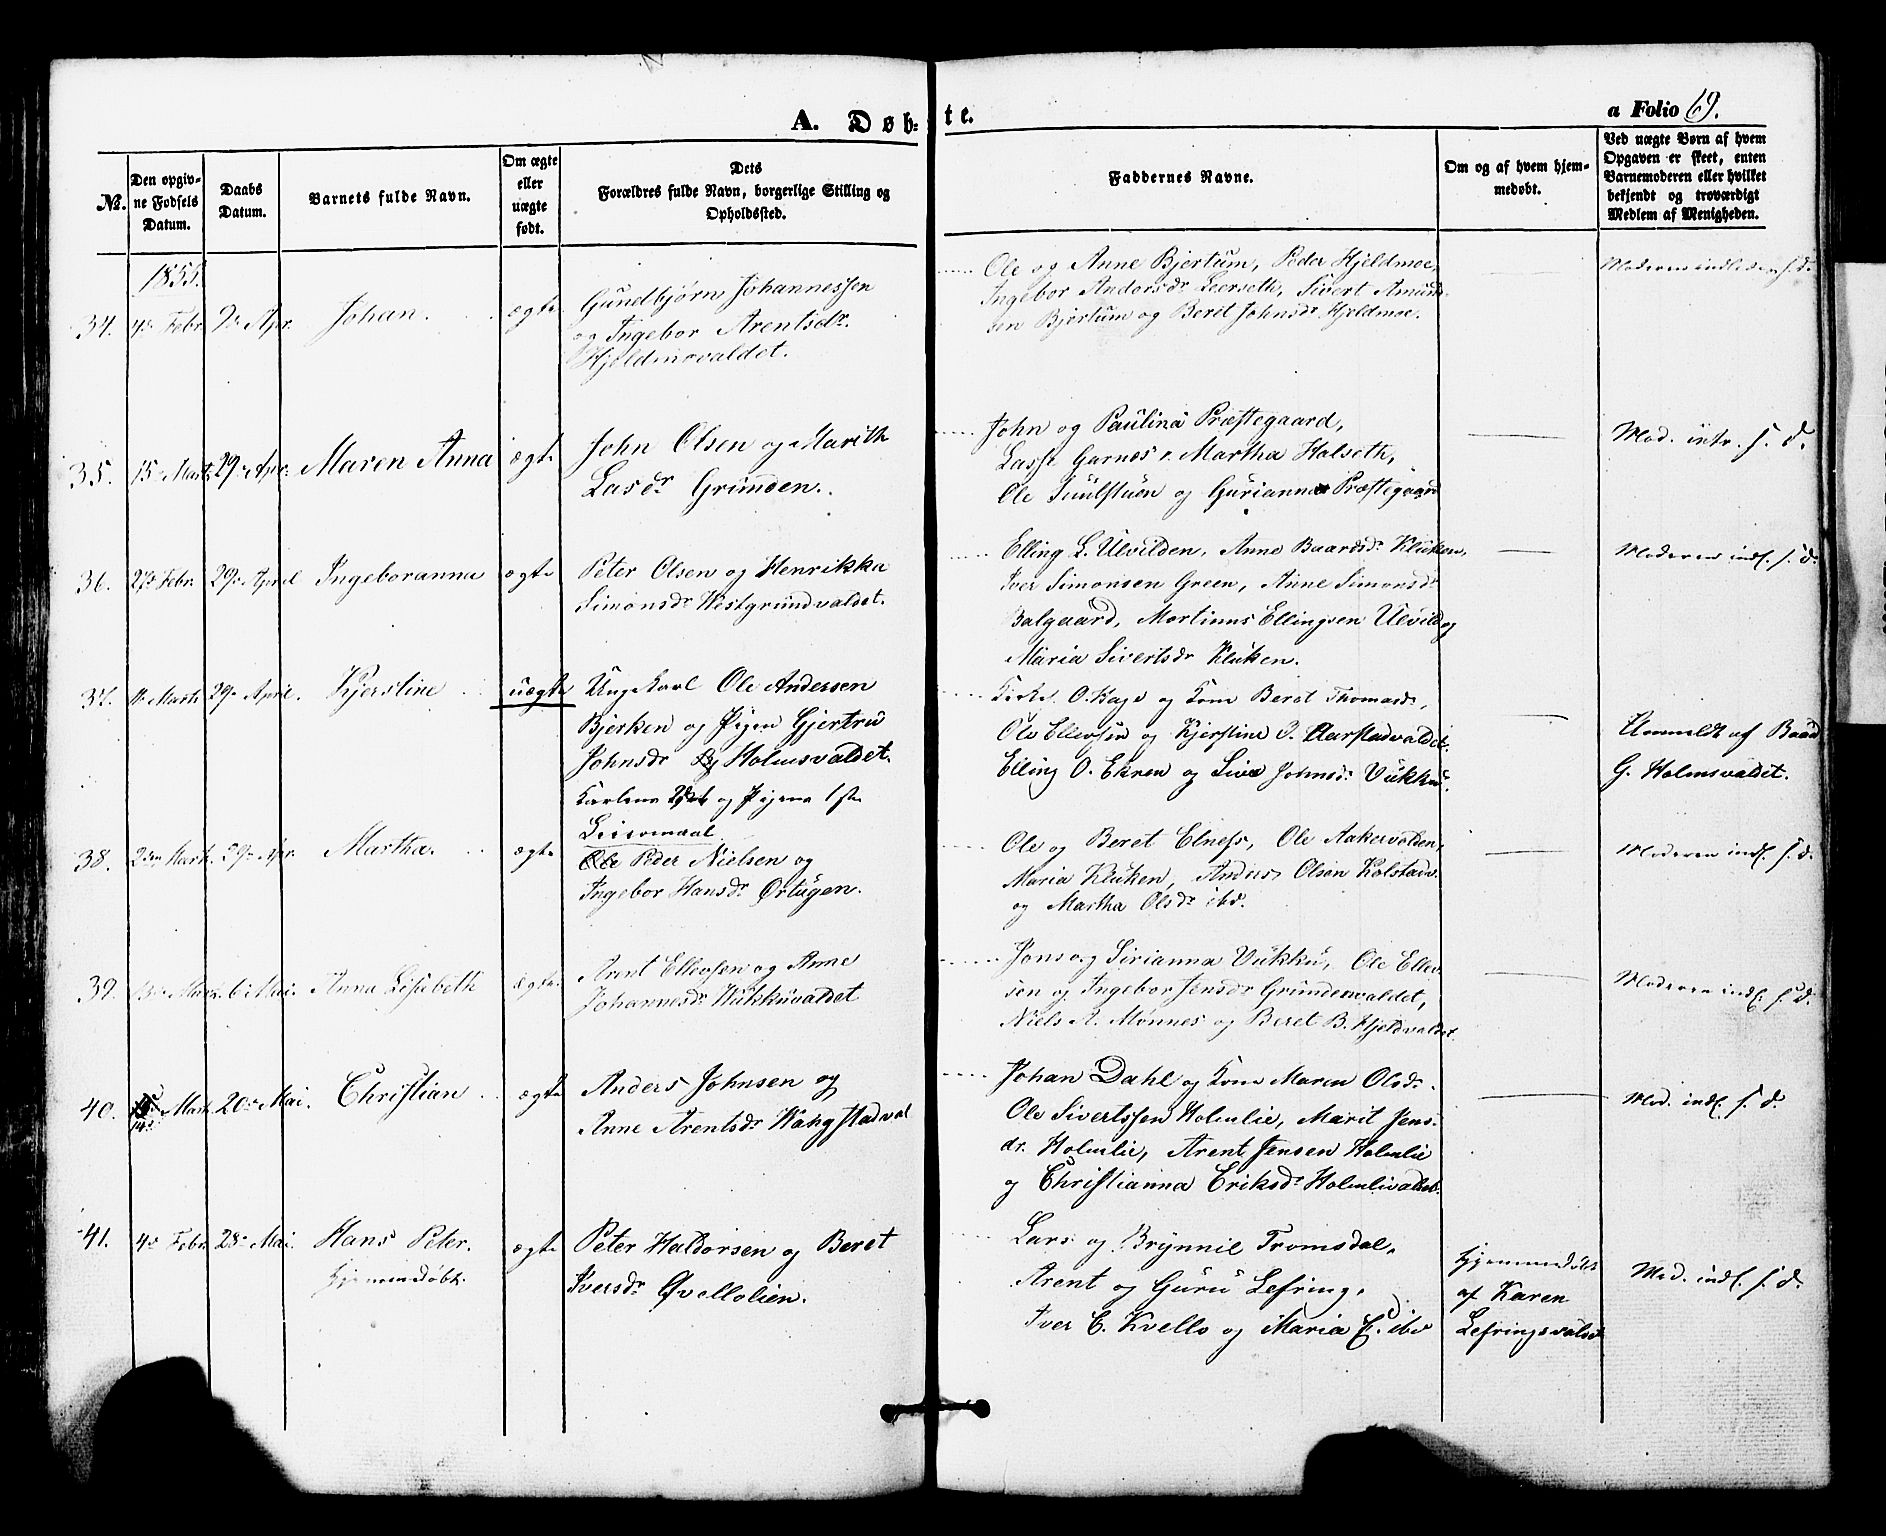 A. Døb-te.
a Folio 69.
№.
Den opgiv-
ne Fødsels
Datum.
Daabs
Datum.
Barnets fulde Navn.
Om ægte
eller
uægte
født.
Dets
Forældres fulde Navn, borgerlige Stilling og
Opholdssted.
Faddernes Navne.
Om og af hvem hjem-
medøbt.
Ved uægte Børn af hvem
Opgaven er skeet, enten
Barnemoderen eller hvilket
bekjendt og troværdigt
Medlem af Menigheden.
1855.
34. 4de Febr. 9de Apr. Johan. ægte
Gundbjørn Johannessen
og Ingebor Arentsdr.
Hjeldmovaldet.
Ole og Anne Bjertum, Peder Hjeldmoe,
Ingebor Andorsdr Leerseth, Sivert Amund-
sen Bjertum og Beret Johnsdr Hjeldmoe.
Moderen indleden s. d.
35. 15de Marts 29de Apr. Maren Anna ægte
John Olsen og Marith
Lasdr Grunden.
John og Paulina Præstegaard,
Lasse Garnes o. Martha Halseth,
Ole Suulstuen og Gurianna Præstegaard
Mod. intr. s. d.
36. 27de Febr. 29de April Ingeboranna ægte
Peter Olsen og Henrikka
Simonsdr Westgrundvaldet.
Elling L. Ulvilden, Anne Baardsdr Kluken,
Iver Simonsen Green, Anne Simonsdr
Balgaard, Martinus Ellingsen Ulvild og
Maria Sivertsdr Kluken.
Moderen indl. s. d.
37. Marts 29de April. Kjerstine uægte
Ungkarl Ole Andersen
Bjerken og Pigen Gjertru
Johnsdr Holmsvaldet.
Karlens 2det og Pigens 1ste
Leiermaal
O. Kage og Kone Beret Thomasdr,
Ole Ellevsen og Kjerstine O. Aarstadvaldet.
Elling O. Ekren og Siva Johnsdr Vukku.
Anmeldt af Baard
G. Holmsvaldet.
38. 2den Marts 29de Apr. Martha. ægte
Peder Nielsen og
Ingebor Hansdr Ørtugen.
Ole og Beret Elness, Ole Aakervolden,
Maria Kluken, Anders Olsen Kolstad
og Martha Olsdr ibd.
Moderen indl. s. d.
39. Marts 6 Mai. Anna Lisebeth ægte.
Arent Ellevsen og Anne
Johannesdr Wukkuvaldet
Jens og Sirianna Vukku, Ole Ellev-
sen og Ingebor Jensdr Grundenvaldet,
Niels A. Mønnes og Beret B. Hjeldvaldet.
Moderen indl. s. d.
40. Marts. 20de Mai. Christian ægte
Anders Johnsen og
Anne Arentsdr Wangstadval
Johan Dahl og Kone Maren Olsdr.
Ole Sivertssen Holmlie, Marit Jens-
dr. Holmlie, Arent Jensen Holmlie
og Christianna Eriksdr Holmlivaldet.
Mod. indl. s. d.
41. 4de Febr. 28de Mai. Hans Peter. ægte
hjemmedøbt.
Peter Haldorsen og Beret
Iversdr Qvellolien.
Lars og Brynnil Tromsdal,
Arent og Guru Lefring,
Iver C. Kvello og Maria E. ibd
Hjemmedøbt
af Karen
Lefringsvaldet
Mod. indl. s. d.